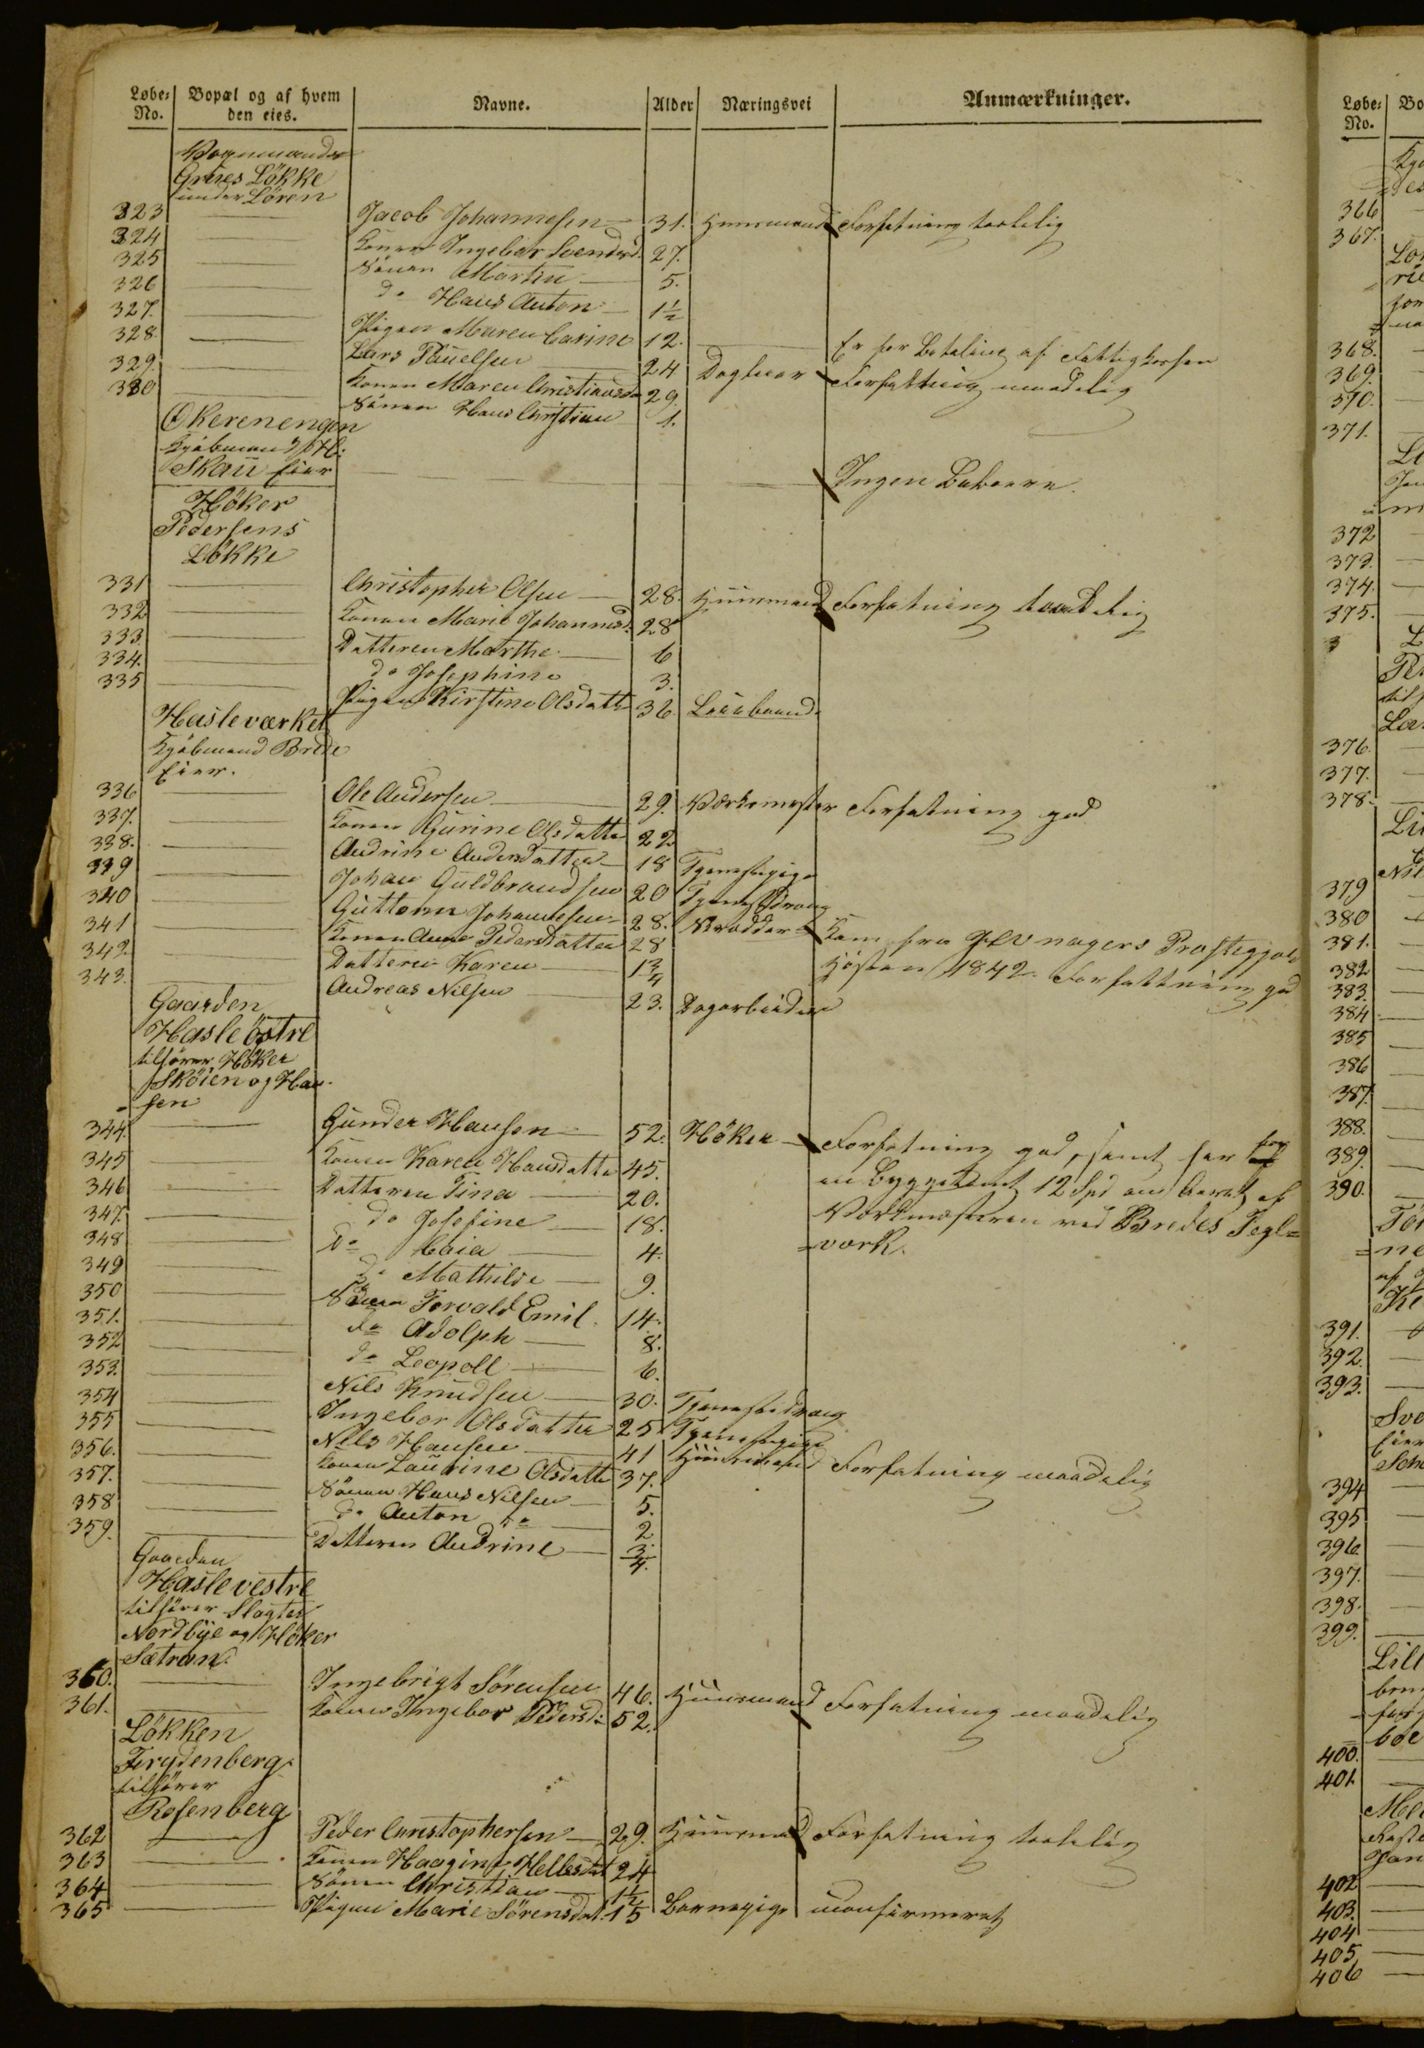 Løbe-No. Bopæl og af hvem den eies. Navne. Alder Næringsvei Anmærkninger.
Vognmand
Grües Løkke
under Løren
323 Jacob Johannesen 31. Huusmand Forfatning taalelig
324 Konen Ingebor Svendsd. 27.
325 Sönen Martin 5.
326 do Hans Anton 1½
327. Pigen Maren Carine 12. Er for Betaling af Fattigkassen
328. Lars Pauelsen 24 Dagleier Forfattning maadelig
329. Konen Maren Christiansdr 29
330 Sönen Hans Christian 1.
Økerenengen
Kjöbmand H:
Skau Eier Ingen Beboere.
Höker
Pedersens
Løkke
331 Christopher Olsen 28. Huusmand Forfatning maadelig
332 Konen Marie Johannesd. 28
333 Datteren Marthe 6
334. do Josephine 3.
335 Pigen Kirstine Olsdatter 36
Hasleværket
Kjöbmand Brede
Eier.
336 Ole Andersen 29. Værksmester Forfatning god
337. Konen Gurine Olsdatter 22
338. Andrine Andersdatter 18 Tjenestepige
339 Johan Guldbrandsen 20 Tjenestedreng
340 Guttorm Johannesen 28. Skrædder Kom fra Præstegjæld
341 Konen Anne Pedersdatter 28 Høsten 1842. Forfattning god
342. Datteren Karen 1¾
343. Andreas Nilsen 23. Dagarbeider
Gaarden
Hasle östre
tilhörer Höker
Skøien og Han-
sen
344. Gunder Hansen 52. Höker Forfatning god, samt har for
345 Konen Karen Hansdatter 45. en Byggetomt 12 Spd om Aaret af
346 Datteren Tina 20. Værkmesteren ved Bredes Tegl=
347. do Josefine 18. =værk.
348 do Caia 4.
349 do Mathilde 9.
350 Sönen Torvald Emil 14.
351. do Adolph 8.
352 do Leopoll 6.
353. Nils Knudsen 30. Tjenestedreng
354 Ingebor Olsdatter 25 Tjenestepige
355 Nils Hansen 41 Huusmand Forfatning maadelig
356. Konen Laurine Olsdatter 37.
357. Sönen Hans Nilsen 5.
358 do Anton do 2
359. Datteren Andrine ¾.
Gaarden
Hasle vestre
tilhörer Slagter
Nordbye og Höker
Sætran.
360. Ingebrigt Sörensen 46. Huusmand Forfatning maadelig
361. Konen Ingebor Pedersd: 52.
Løkken
Frydenberg
tilhörer
Rosenberg
362 Peder Christophersen 29. Huusmand Forfatning taalelig
363 Konen Haagine Hellesdat 24
364 Sönen Christian 1½
365 Pigen Marie Sörensdat. 15 Barnepige uconfirmeret
Løbe-No. Bo
366
367.
368.
369.
370.
371.
372
373.
374.
375.
376.
377.
378.
379
380
381.
382
383.
384
385
386
387.
388.
389.
390.
391.
392.
393.
394
395
396
397.
398.
399.
400.
401.
402
403.
404
405
406